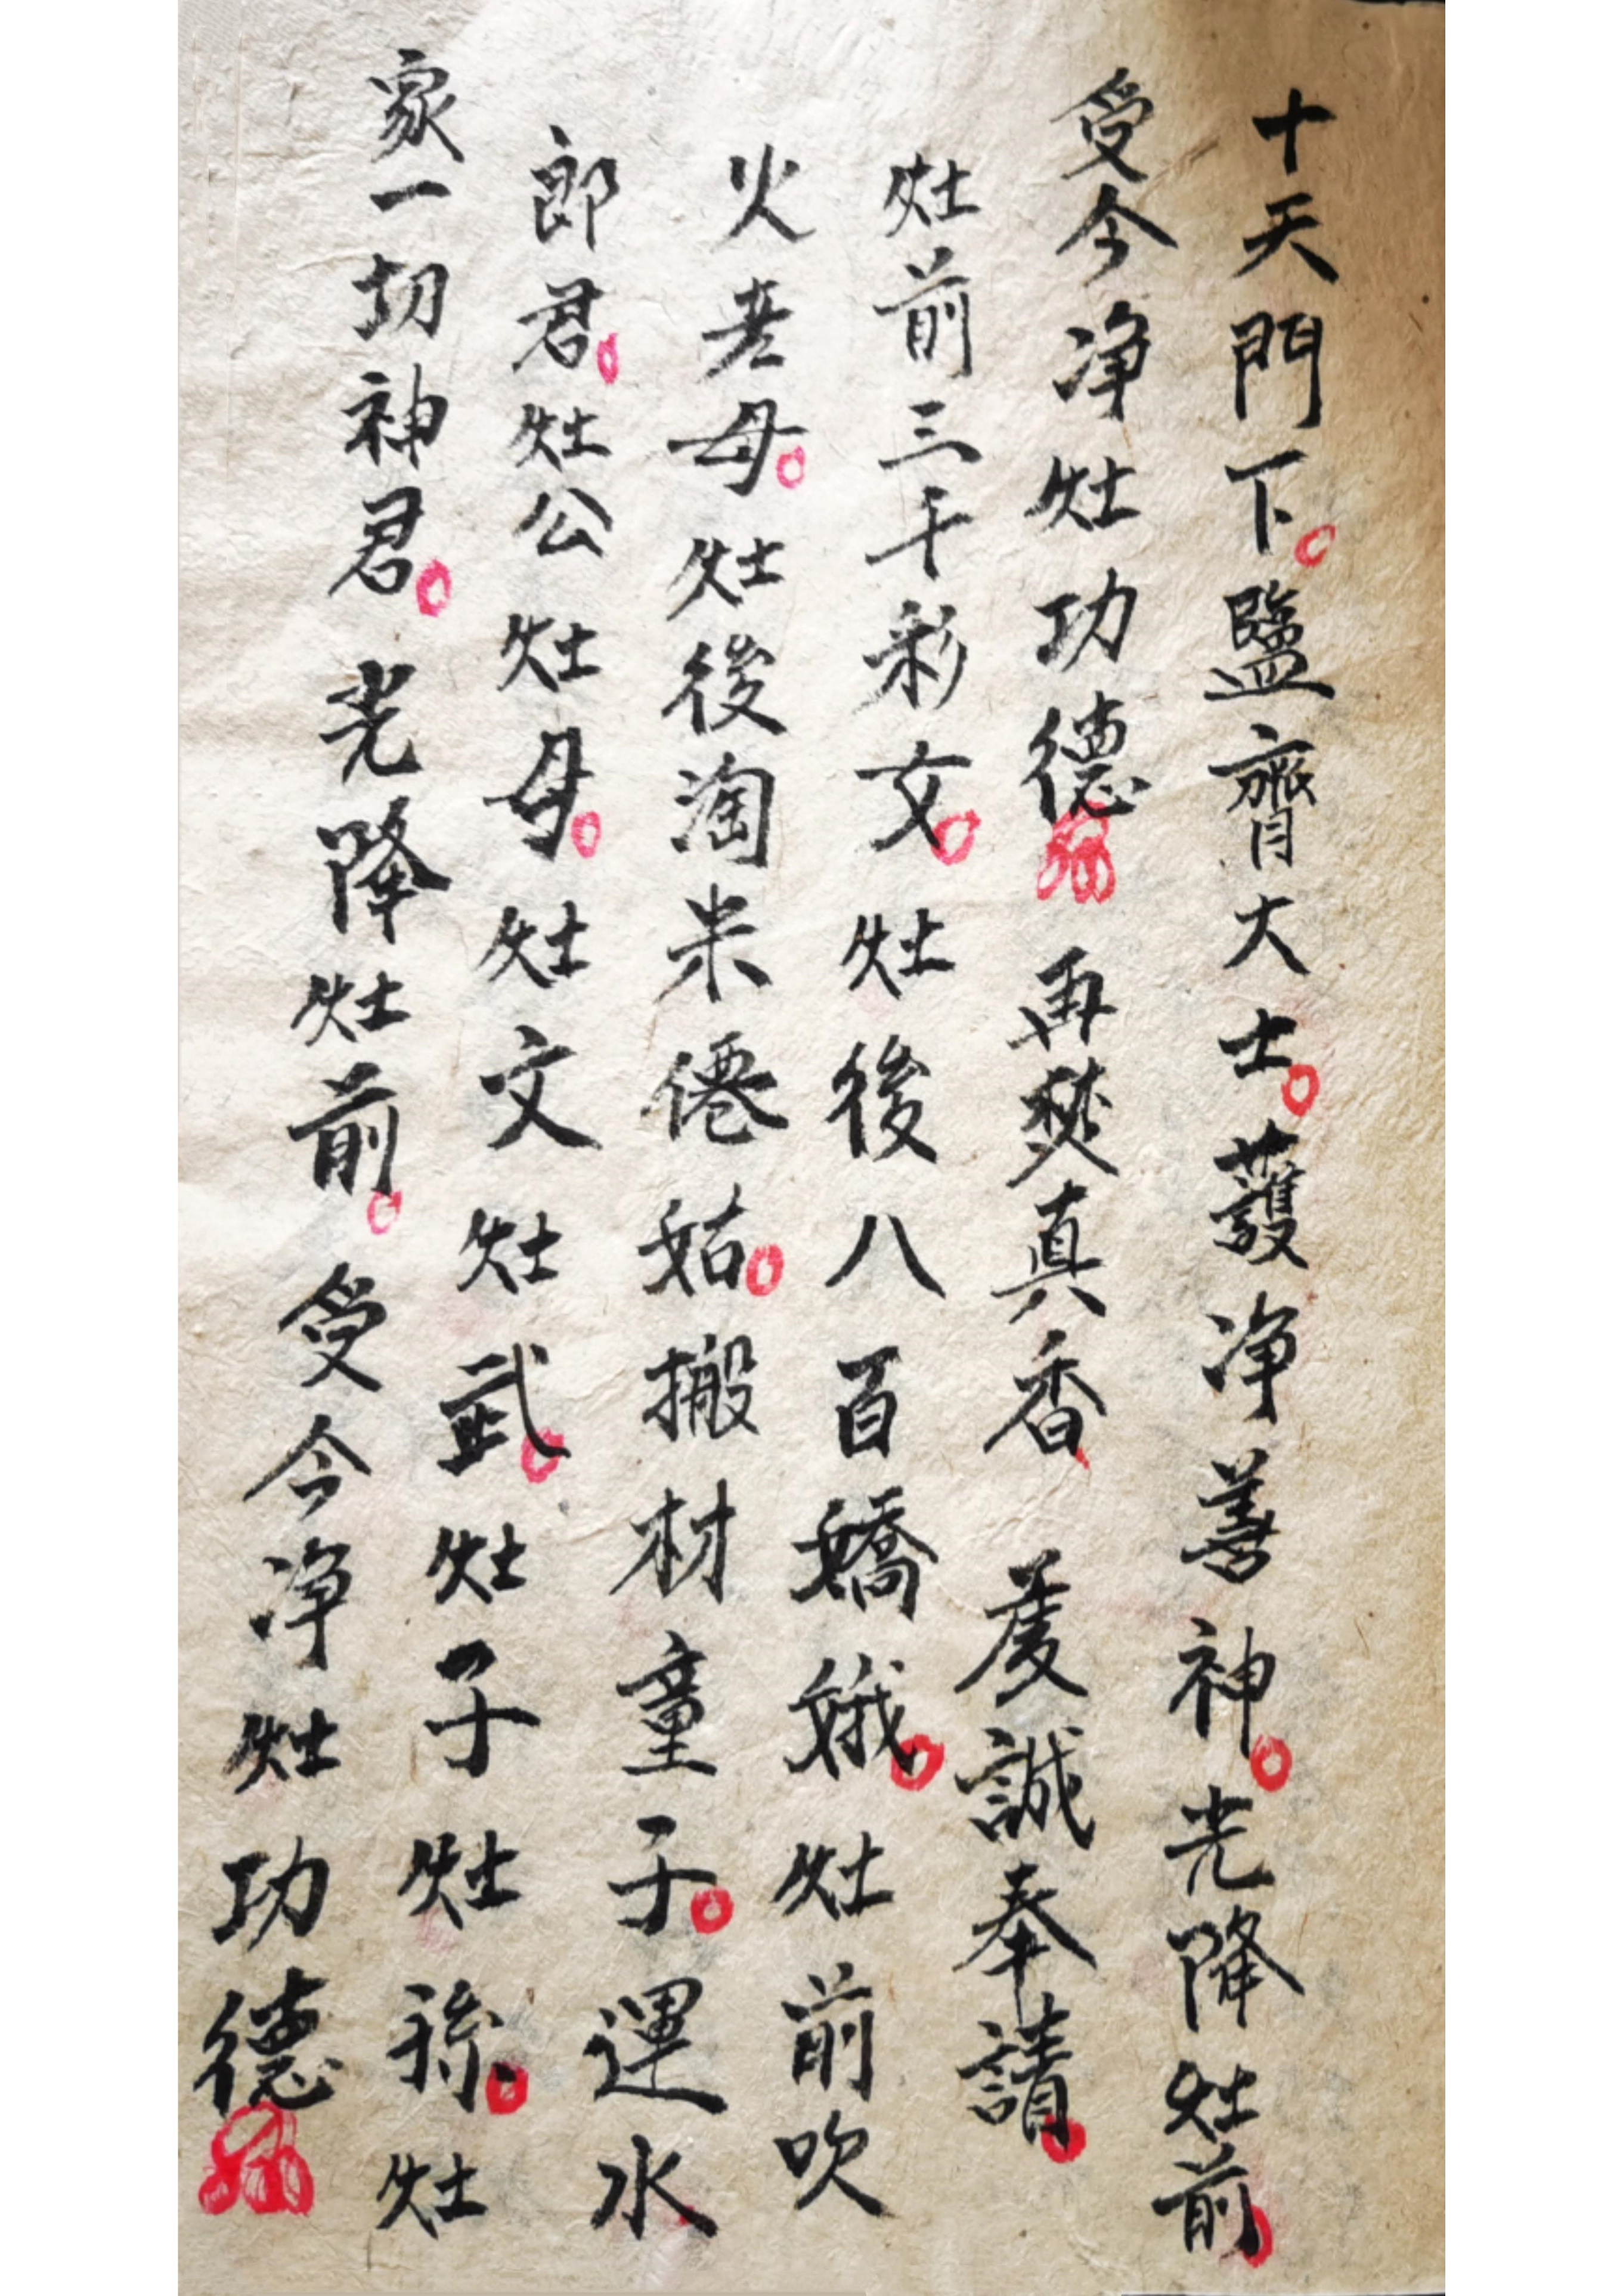 十天門下。監齋大士。護净善神。光降灶前。
受今净灶功德 再焚真香 虔誠奉請。
灶前三千彩女。灶後八百嬌娥。灶前吹
火老母。灶後淘米僊姑。搬材童子。運水
郎君。灶公灶母。灶文灶武。灶子灶孫。灶
家一切神君。光降灶前。受今净灶功德